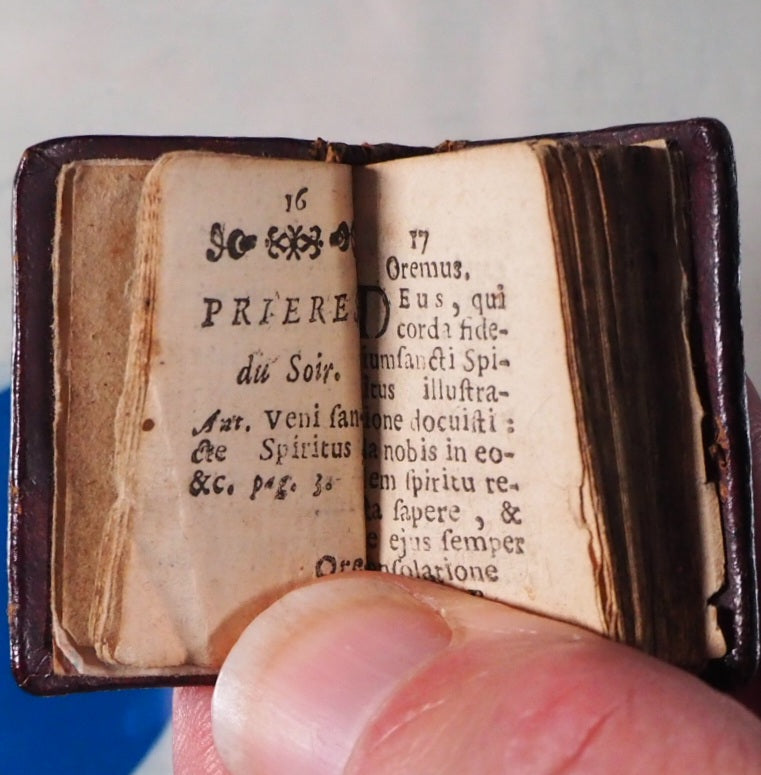 16
PRIERE
du Soir.
Ant. Veni ſan-
cte Spiritus
&c. pag. 3.
Ore
17
Oremus.
DEus, qui
corda fide-
iumſancti Spi-
itus illuſtra-
ione docuiſti :
da nobis in eo-
dem ſpiritu re-
ta ſapere, &
e ejus ſemper
onſolatione